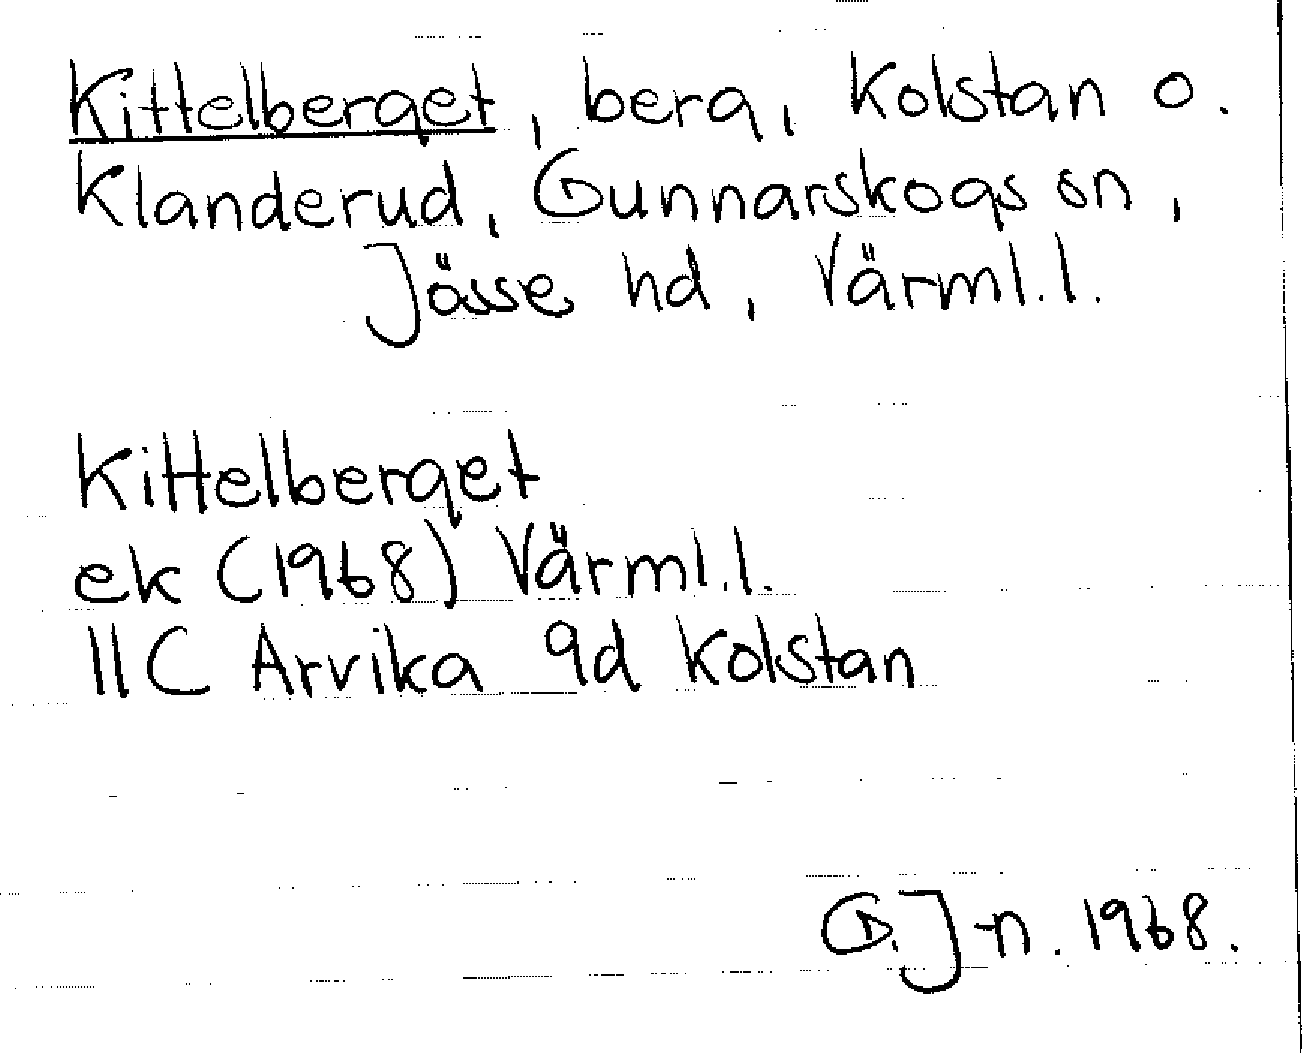 Kittelberget, berg, Kolstan o.
Klanderud, Gunnarskogs sn,
Jösse hd, Värml.l.
Kittelberget
ek (1968) Värml.l.
11C Arvika 9d Kolstan
G.J-n. 1968.